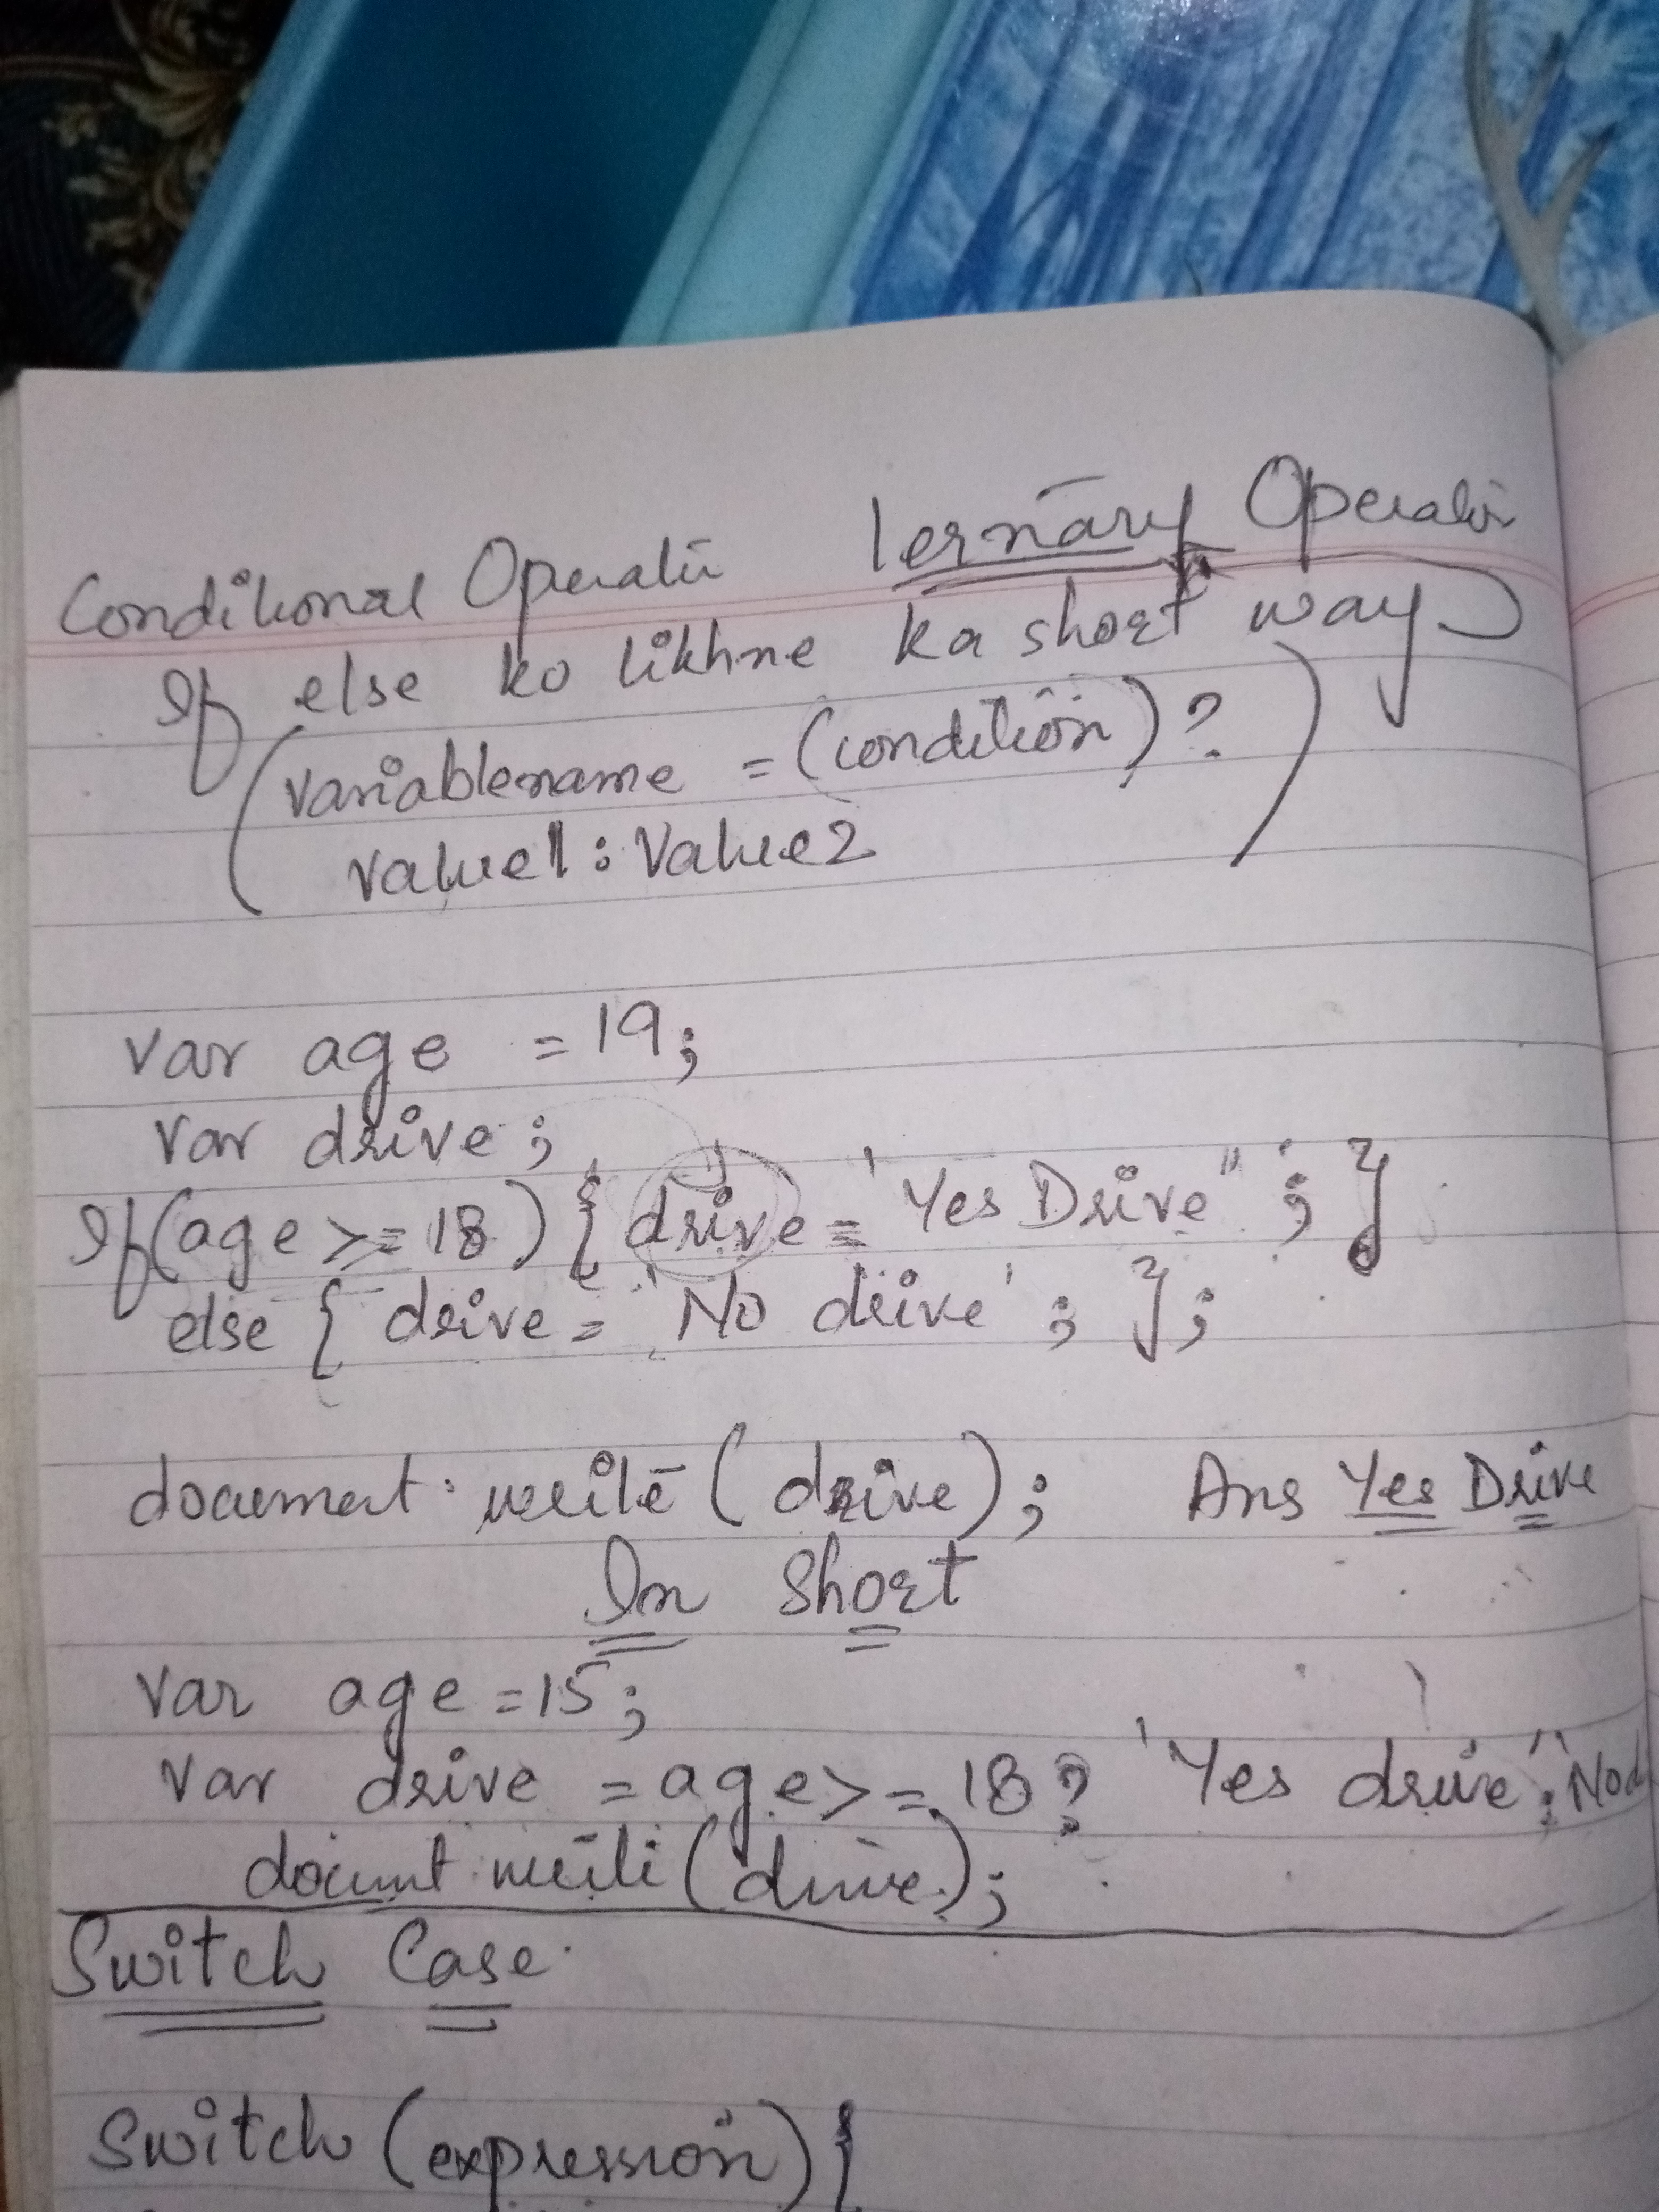 Conditional Operator Ternary Operator
If else ko likhne ka short way
(variablename = (condition) ?
value1 : Value2 )
var age = 19;
var drive;
If (age >= 18) { drive = 'Yes Drive" ; }
else { drive = 'No drive' ; };
document.write (drive); Ans Yes Drive
In Short
var age = 15;
var drive = age >= 18 ? 'Yes drive" : No d
docunt.write (drive);
Switch Case.
Switch (expression) {